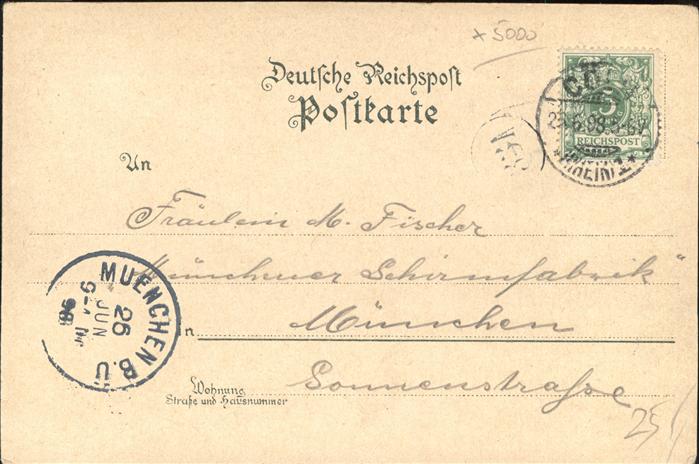 x 5000
Deutsche Reichspost
Postkarte
5
REICHSPOST
CÖLN
(RHEIN) 1
An
Fräulein M. Fischer
"Münchner Schirmfabrik"
in München
Wohnung
Straße und Hausnummer
Sonnenstraße
25
MUENCHEN B.Ü
26
JUN
98